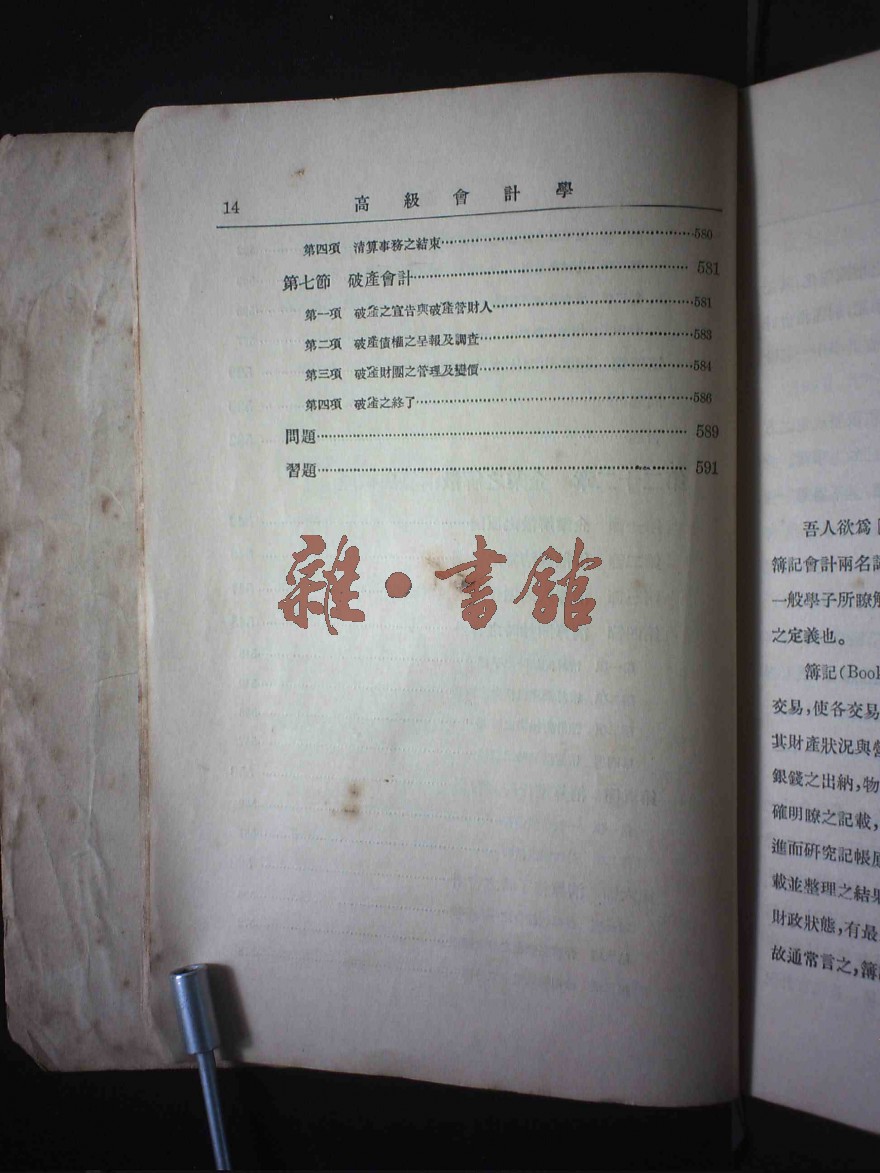 14 高級會計學
第四項 清算事務之結束……580
第七節 破產會計……581
第一項 破產之宣告與破產管財人……581
第二項 破產債權之呈報及調查……583
第三項 破產財團之管理及變價……584
第四項 破產之終了……586
問題……589
習題……591
雜·書館
吾人欲爲
簿記會計兩名
一般學子所瞭解
之定義也。
簿記(Book
交易,使各交易
其財產狀況與
銀錢之出納,物
確明瞭之記載,
進而研究記帳
載並整理之結果
財政狀態,有最
故通常言之,簿